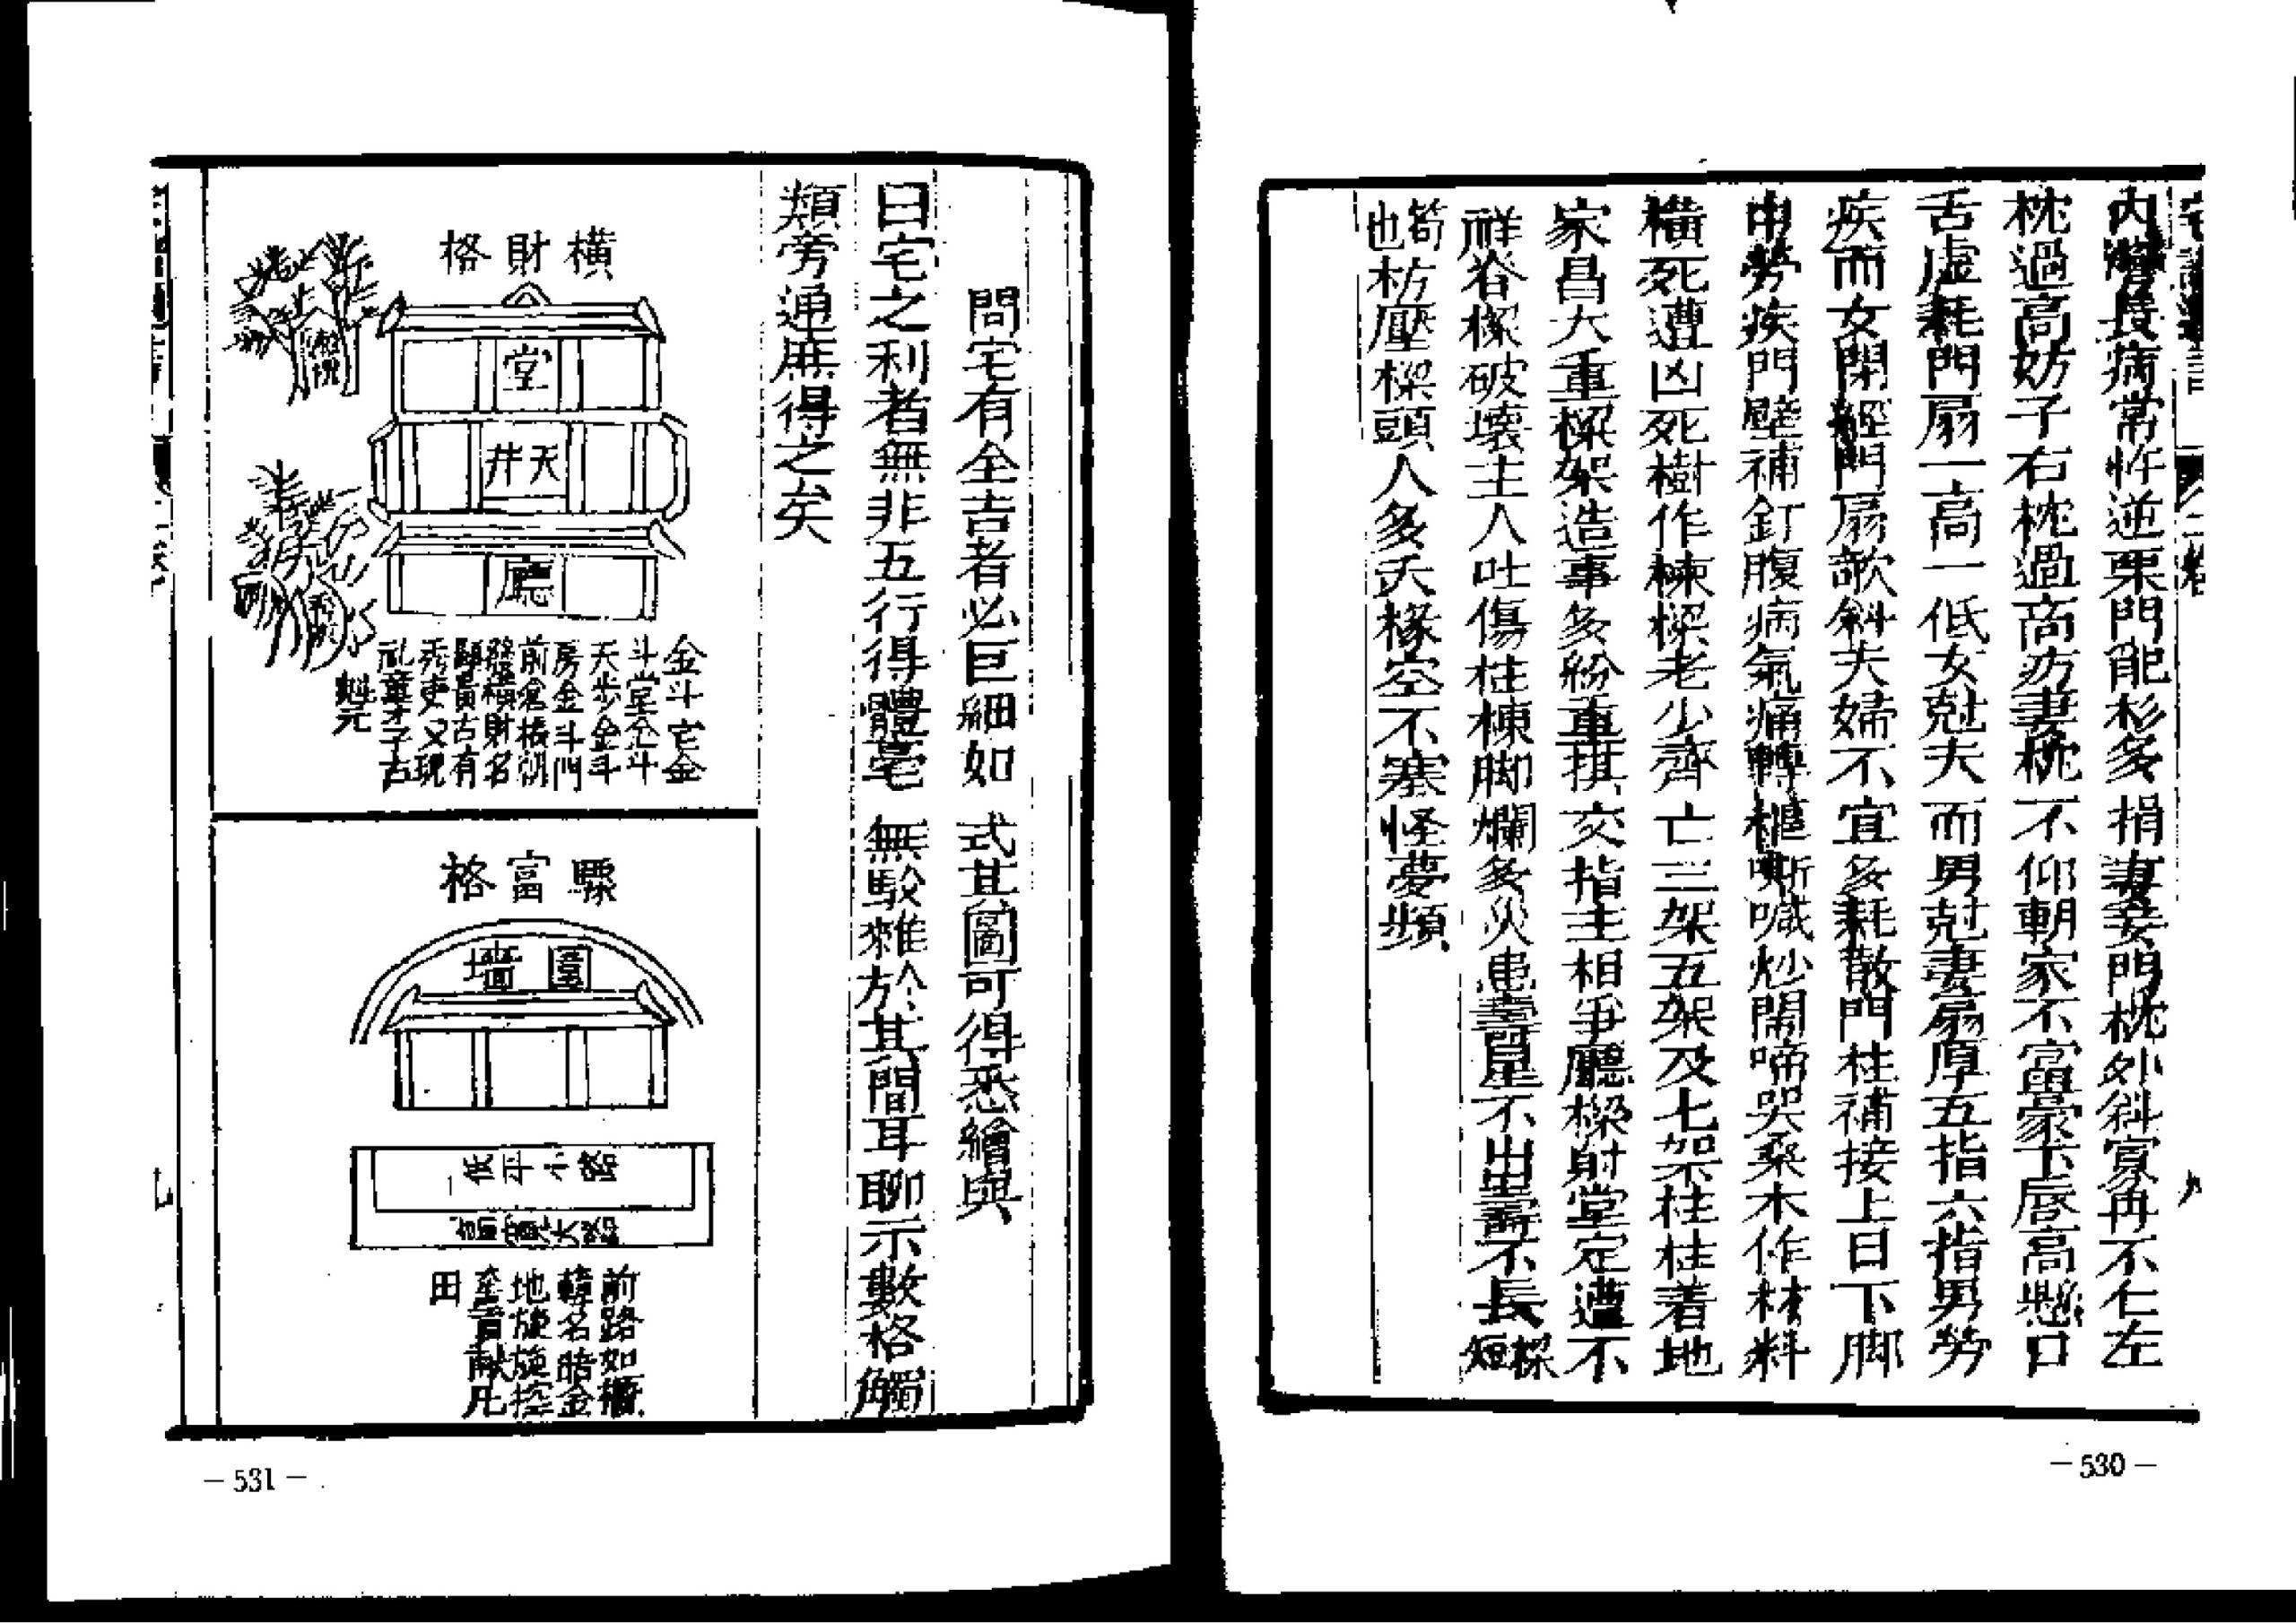 內
長病常忤逆栗門能杉多損妻妾門枕外斜寡再不仁左
枕過高妨子右枕過高妨妻枕不仰朝家不富豪下唇高懸口
舌虛耗門扇一高一低女尅夫而男尅妻扇厚五指六指男勞
疾而女閉經門扇欹斜夫婦不宜多耗散門柱補接上目下脚
由勞疾門壁補釘腹病氣痛轉樞嘶喊炒鬧啼哭桑木作材料
橫死遭凶死樹作棟樑老少齊亡三架五架及七架柱柱着地
家昌大重樑架造事多紛重棋交指主相爭廳樑射堂定遭不
祥脊樑破壞主人吐傷柱棟脚爛多災患壽星不出壽不長短樑
也筍枋壓樑頭人多夭椽空不塞怪夢頻
九
－530－
問宅有全吉者必巨細如式其圖可得悉繪與
曰宅之利者無非五行得體宅無駁雜於其間耳聊示數格觸
類旁通庶得之矣
橫財格
堂
天井
廳
金斗宅金
斗堂仝斗
天步金斗
房金斗門
前倉板湖
橫財名
顯富古有
秀吏又現
乩童才子古
魁元
驟富格
圍墻
低平小路
富貴大路
前路如
名時金
地旋施控
田
－531－